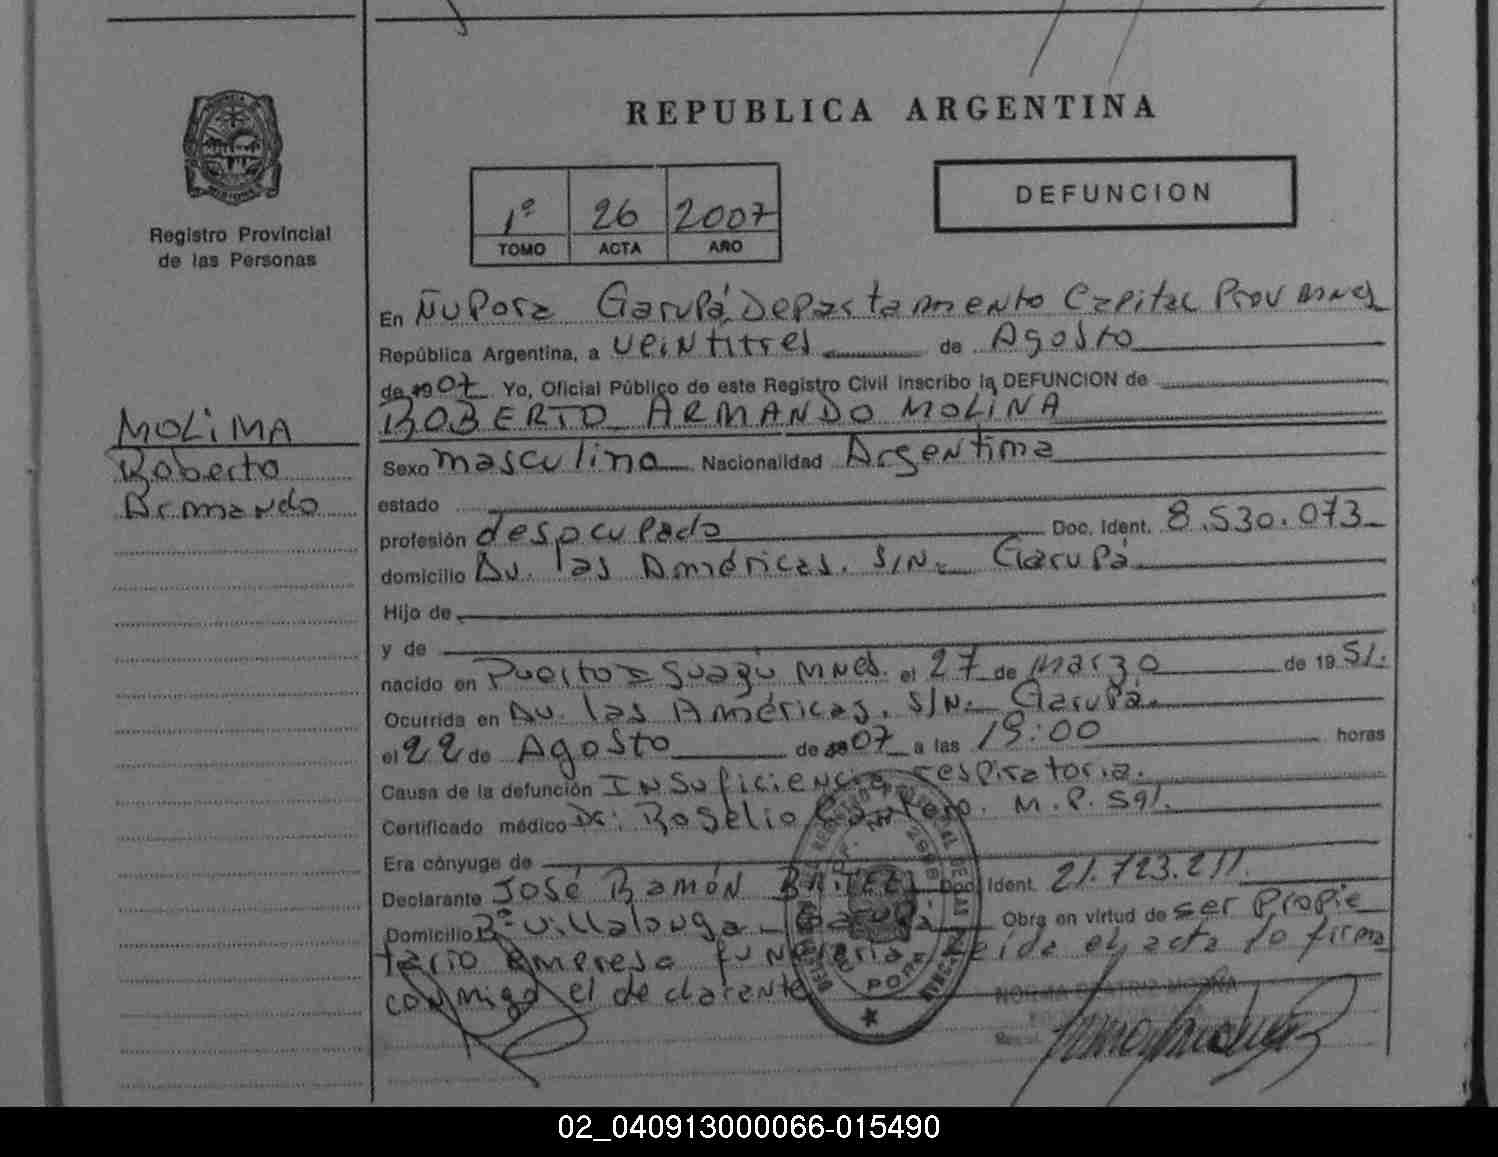 REPUBLICA ARGENTINA
DEFUNCION
1º 26 2007
TOMO ACTA AÑO
Registro Provincial
de las Personas
En Ñu Pora Garupá, Departamento Capital Prov Mnes
República Argentina, a veintitres de Agosto
de 1907 Yo, Oficial Público de este Registro Civil inscribo la DEFUNCION de
MOLINA
ROBERTO ARMANDO MOLINA
Roberto
Sexo masculino Nacionalidad Argentina
Armando
estado
profesión desocupado Doc. Ident. 8.530.073
domicilio Av. las Américas. S/Nº Garupá
Hijo de
y de
nacido en Puerto Iguazú Mnes. el 27 de marzo de 1951.
Ocurrida en Av. las Américas, S/Nº Garupá.
el 22 de Agosto de 07 a las 19:00 horas
Causa de la defunción Insuficiencia respiratoria.
Certificado médico Dr: Rogelio M.P. 591.
Era cónyuge de
Declarante José Ramón Doc. Ident. 21.723.211.
Domicilio Bº Villalonga - Garupá Obra en virtud de ser Propie
tario Empresa funeraria Leida el acta lo firma
conmigo el declarante
NORMA BEATRIZ
02_040913000066-015490